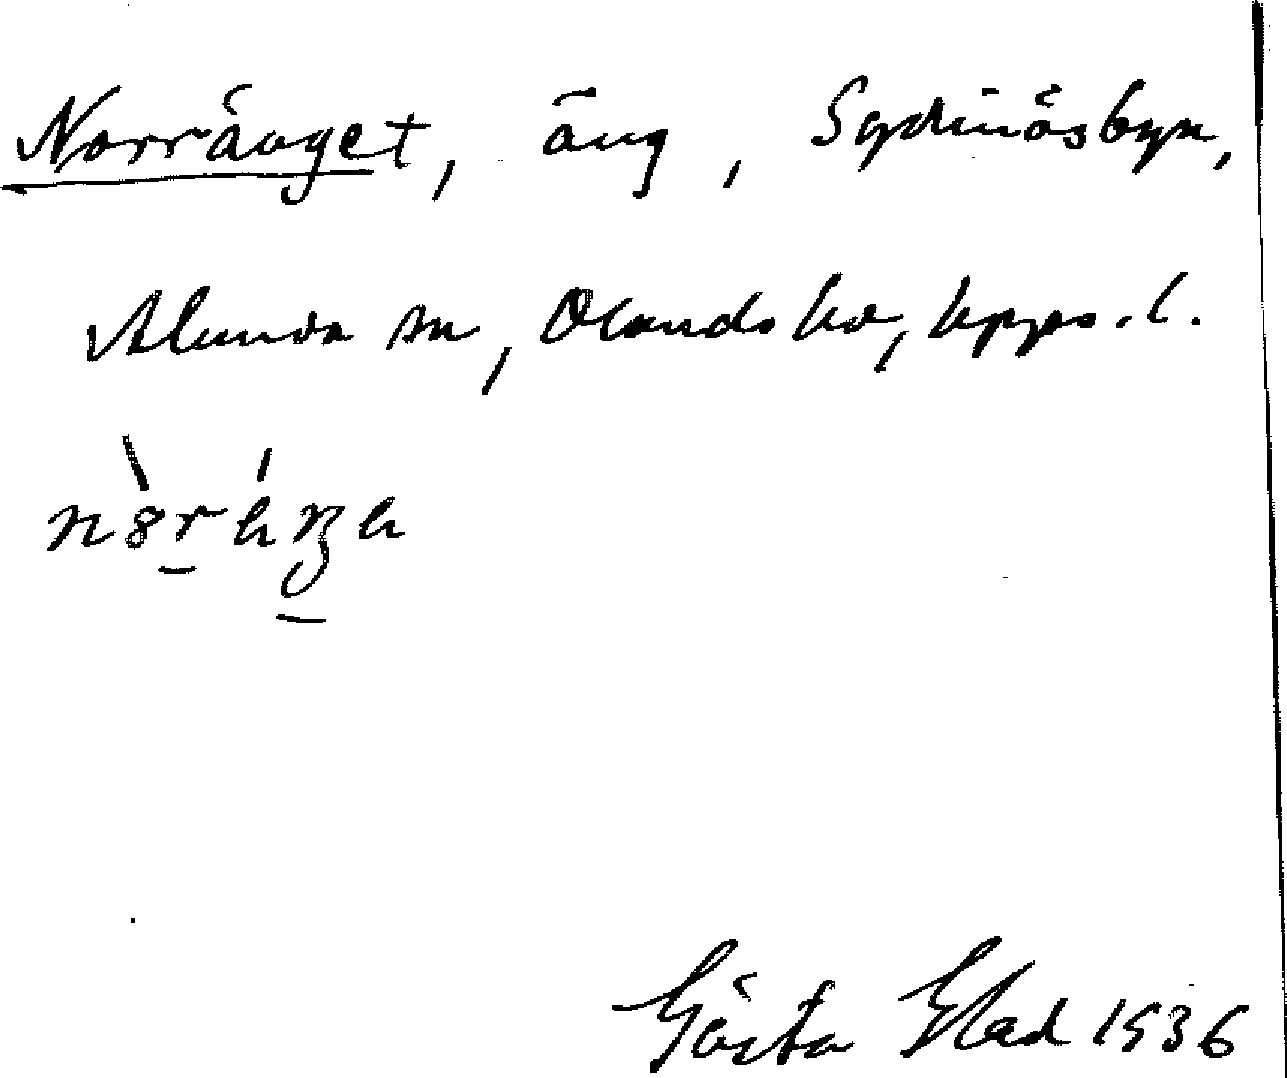 Norränget, äng, Sydinäsbyn,
Alunda sn, Olands hd, Upps. l.
Gösta Elad 1936